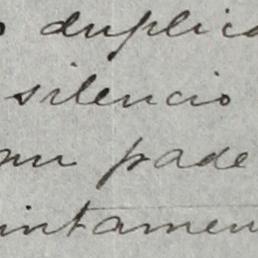 duplica
silencio
pade
intamen